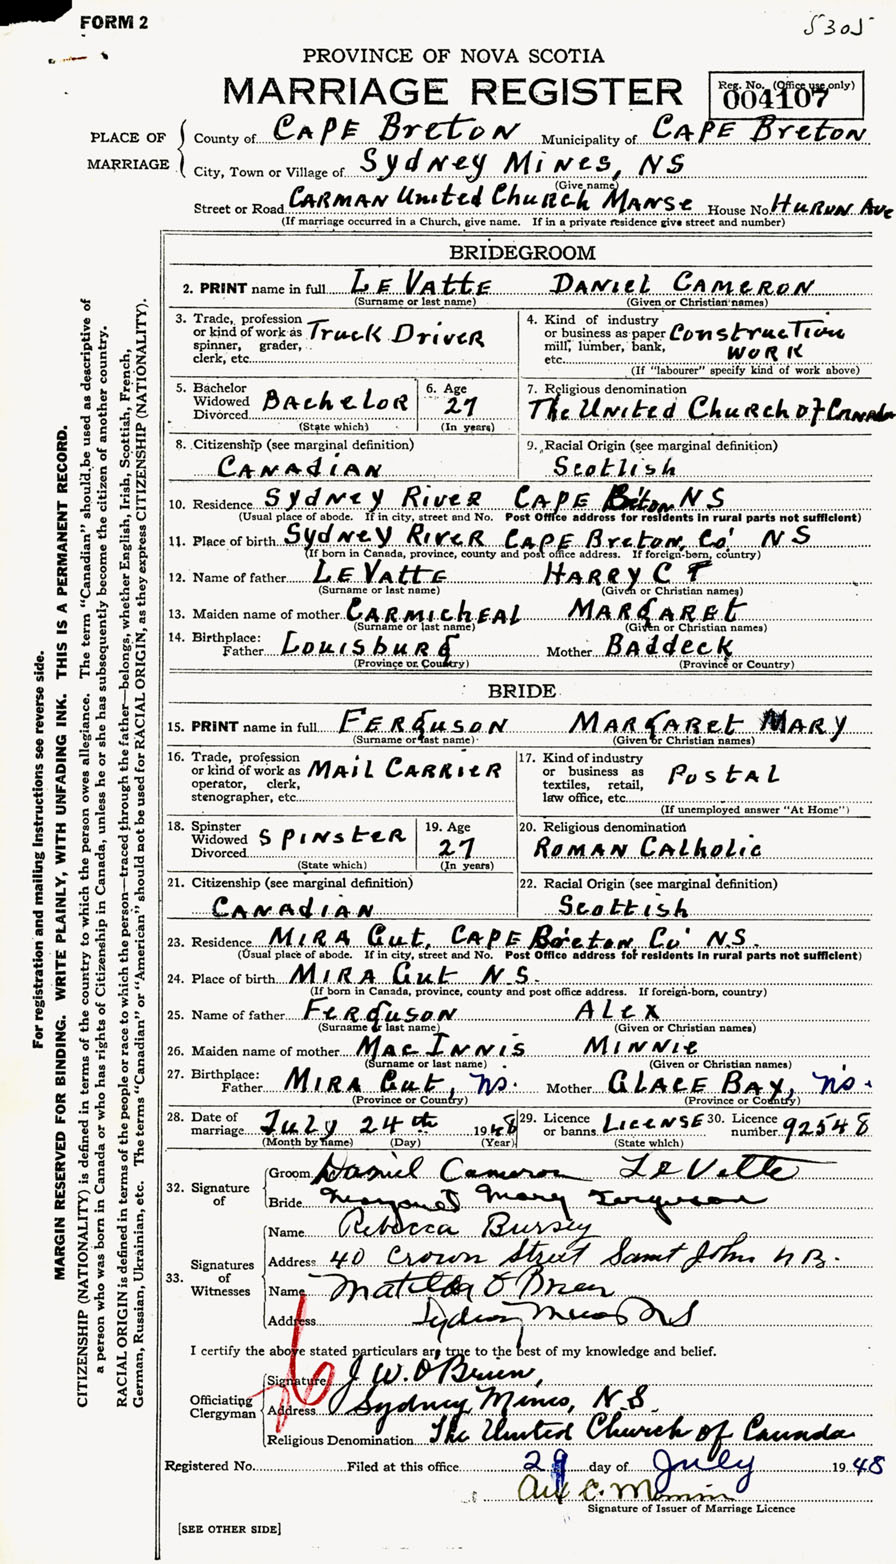 FORM 2
5305
PROVINCE OF NOVA SCOTIA
MARRIAGE REGISTER
Reg. No. (Office use only)
004107
PLACE OF MARRIAGE
County of CAPE Breton Municipality of CAPE Breton
City, Town or Village of Sydney Mines, NS
(Give name)
Street or Road CARMAN United Church Manse House No. HURUN Ave
(If marriage occurred in a Church, give name. If in a private residence give street and number)
BRIDEGROOM
2. PRINT name in full LE VATTE DANIEL CAMERON
(Surname or last name) (Given or Christian names)
3. Trade, profession or kind of work as spinner, grader, clerk, etc. Truck Driver
4. Kind of industry or business as paper mill, lumber, bank, etc. Construction WORK
(If "labourer" specify kind of work above)
5. Bachelor Widowed Divorced BACHELOR
(State which)
6. Age 27
(In years)
7. Religious denomination
The United Church of Canada
8. Citizenship (see marginal definition)
CANADIAN
9. Racial Origin (see marginal definition)
Scottish
10. Residence Sydney River CAPE Breton NS
(Usual place of abode. If in city, street and No. Post Office address for residents in rural parts not sufficient)
11. Place of birth Sydney River CAPE Breton, Co' NS
(If born in Canada, province, county and post office address. If foreign-born, country)
12. Name of father LE VATTE HARRY C T
(Surname or last name) (Given or Christian names)
13. Maiden name of mother CARMICHEAL MARGARET
(Surname or last name) (Given or Christian names)
14. Birthplace: Father Louisburg Mother BADDECK
(Province or Country) (Province or Country)
BRIDE
15. PRINT name in full FERGUSON MARGARET MARY
(Surname or last name) (Given or Christian names)
16. Trade, profession or kind of work as operator, clerk, stenographer, etc. MAIL CARRIER
17. Kind of industry or business as textiles, retail, law office, etc. POSTAL
(If unemployed answer "At Home")
18. Spinster Widowed Divorced SPINSTER
(State which)
19. Age 27
(In years)
20. Religious denomination
ROMAN CATHOLIC
21. Citizenship (see marginal definition)
CANADIAN
22. Racial Origin (see marginal definition)
Scottish
23. Residence MIRA Gut, CAPE Breton Co' N.S.
(Usual place of abode. If in city, street and No. Post Office address for residents in rural parts not sufficient)
24. Place of birth MIRA Gut N.S.
(If born in Canada, province, county and post office address. If foreign-born, country)
25. Name of father FERGUSON ALEX
(Surname or last name) (Given or Christian names)
26. Maiden name of mother MAC INNIS MINNIE
(Surname or last name) (Given or Christian names)
27. Birthplace: Father MIRA Gut, N.S. Mother GLACE BAY, N.S.
(Province or Country) (Province or Country)
28. Date of marriage July 24th 1948
(Month by name) (Day) (Year)
29. Licence or banns LICENSE
(State which)
30. Licence number 92548
32. Signature of
Groom Daniel Cameron Le Vatte
Bride Margaret Mary Ferguson
33. Signatures of Witnesses
Name Rebecca Bursey
Address 40 Crown Street Saint John N B.
Name Matilda O'Brien
Address Sydney Mines NS
I certify the above stated particulars are true to the best of my knowledge and belief.
Officiating Clergyman
Signature J W. O'Brien,
Address Sydney Mines, N.S.
Religious Denomination The United Church of Canada
Registered No. Filed at this office 29 day of July 1948
Signature of Issuer of Marriage Licence
[SEE OTHER SIDE]
For registration and mailing instructions see reverse side.
MARGIN RESERVED FOR BINDING. WRITE PLAINLY, WITH UNFADING INK. THIS IS A PERMANENT RECORD.
CITIZENSHIP (NATIONALITY) is defined in terms of the country to which the person owes allegiance. The term "Canadian" should be used as descriptive of
a person who was born in Canada or who has rights of Citizenship in Canada, unless he or she has subsequently become the citizen of another country.
RACIAL ORIGIN is defined in terms of the people or race to which the person—traced through the father—belongs, whether English, Irish, Scottish, French,
German, Russian, Ukrainian, etc. The terms "Canadian" or "American" should not be used for RACIAL ORIGIN, as they express CITIZENSHIP (NATIONALITY).